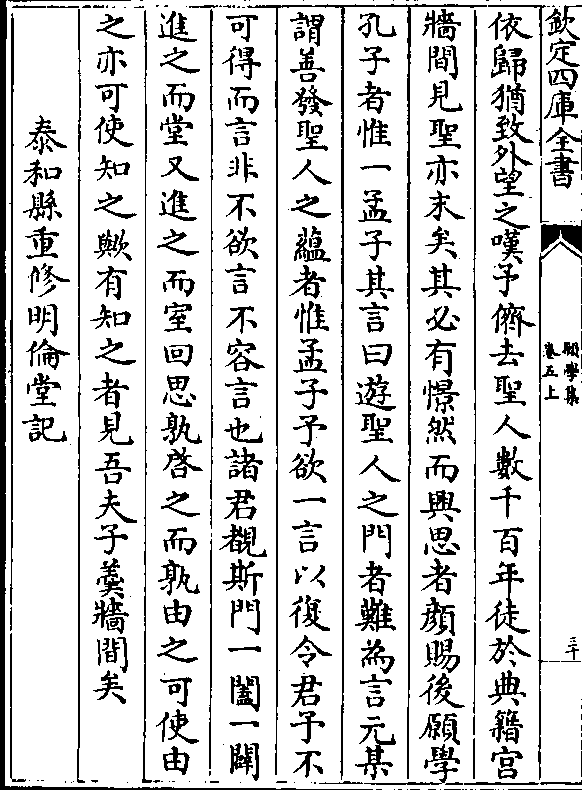 欽定四庫全書
願學集
卷五上
三十
依歸猶致外望之嘆予儕去聖人數千百年徒於典籍宮
牆間見聖亦末矣其必有憬然而興思者顏賜後願學
孔子者惟一孟子其言曰遊聖人之門者難為言元某
謂善發聖人之蘊者惟孟子予欲一言以復令君予不
可得而言非不欲言不容言也諸君覩斯門一闔一闢
進之而堂又進之而室回思孰啓之而孰由之可使由
之亦可使知之歟有知之者見吾夫子羹牆間矣
泰和縣重修明倫堂記